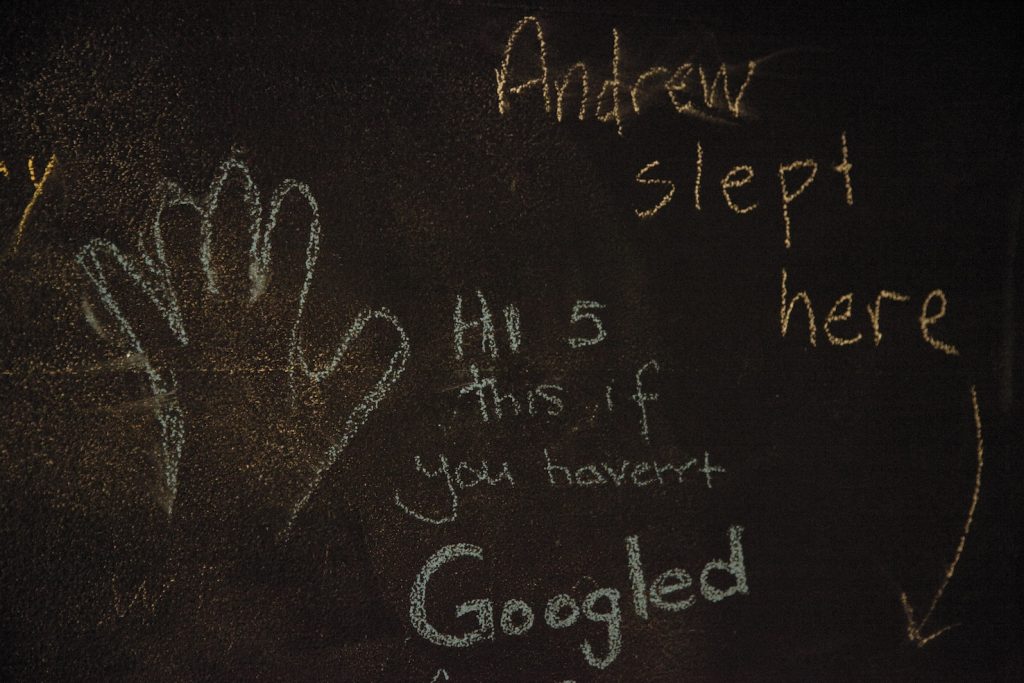 Andrew
slept
here
y
HI 5
this if
you haven't
Googled